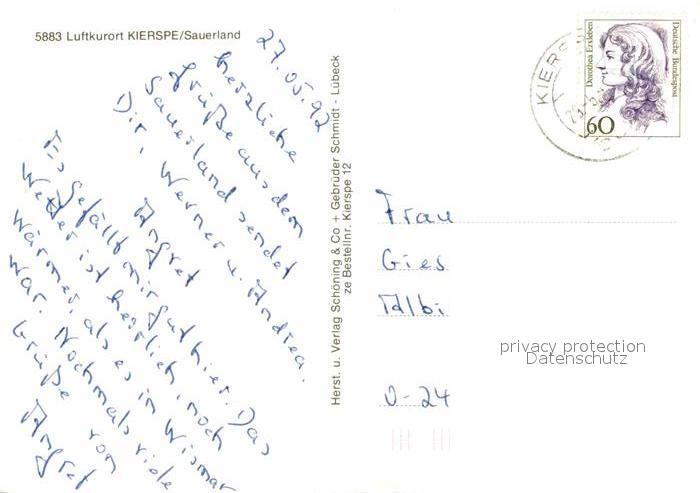 5883 Luftkurort KIERSPE/Sauerland
27.05.92
herzliche
Grüße aus dem
Sauerland sendet
Dir, Werner u. Andrea.
Angret
Es gefällt mir gut hier. Das
Wetter ist herrlich, noch
wärmer, als es in Wismar
war. Nochmals viele
Grüße von
Angret
Herst. u. Verlag Schöning & Co + Gebrüder Schmidt - Lübeck
ze Bestellnr. Kierspe 12
Dorothea Erxleben
Deutsche Bundespost
60
KIERS
Frau
Gies
Albi
O-24
privacy protection
Datenschutz